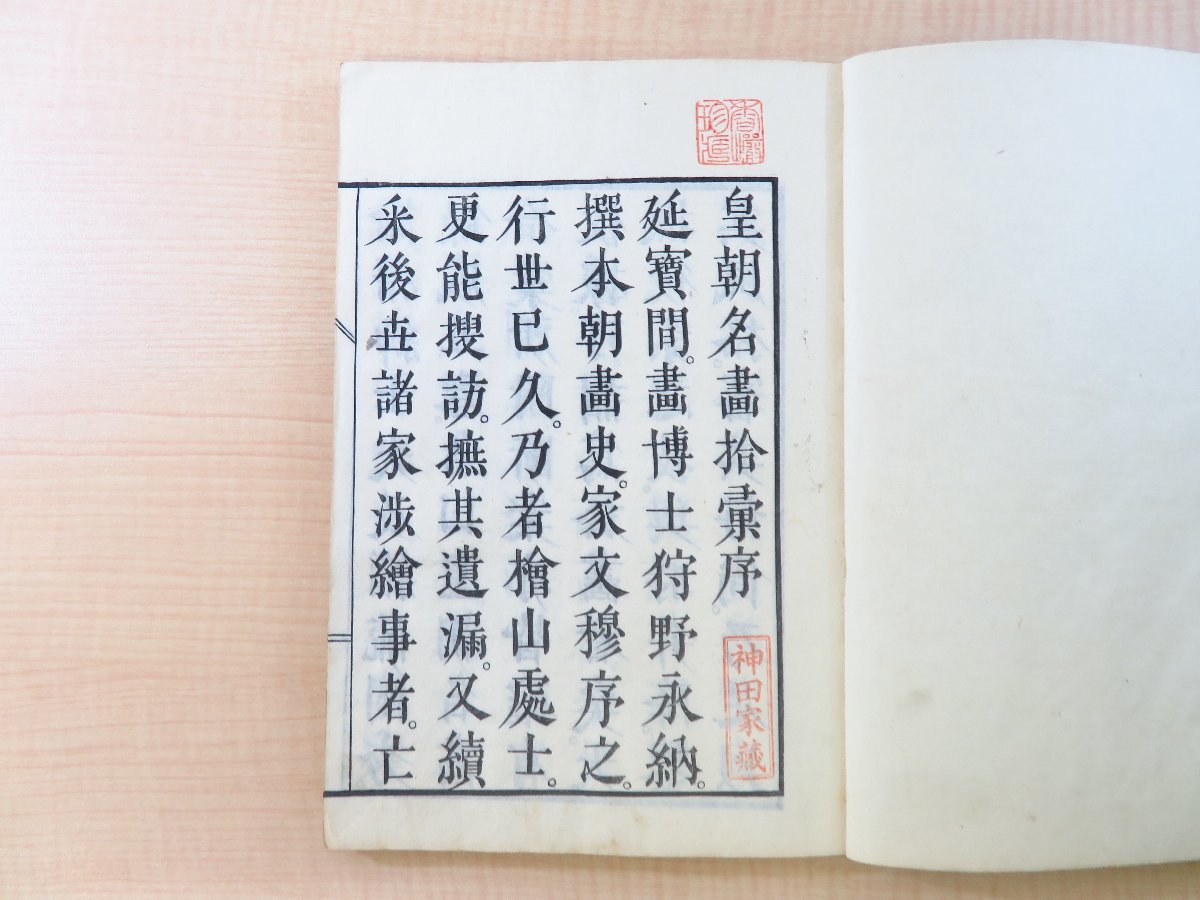 皇朝名畫拾彙序
延寶間。畫博士狩野永納。
撰本朝畫史。家文穆序之。
行世已久。乃者檜山處士。
更能搜訪。摭其遺漏。又續
釆後丗諸家涉繪事者。亡
神田家藏